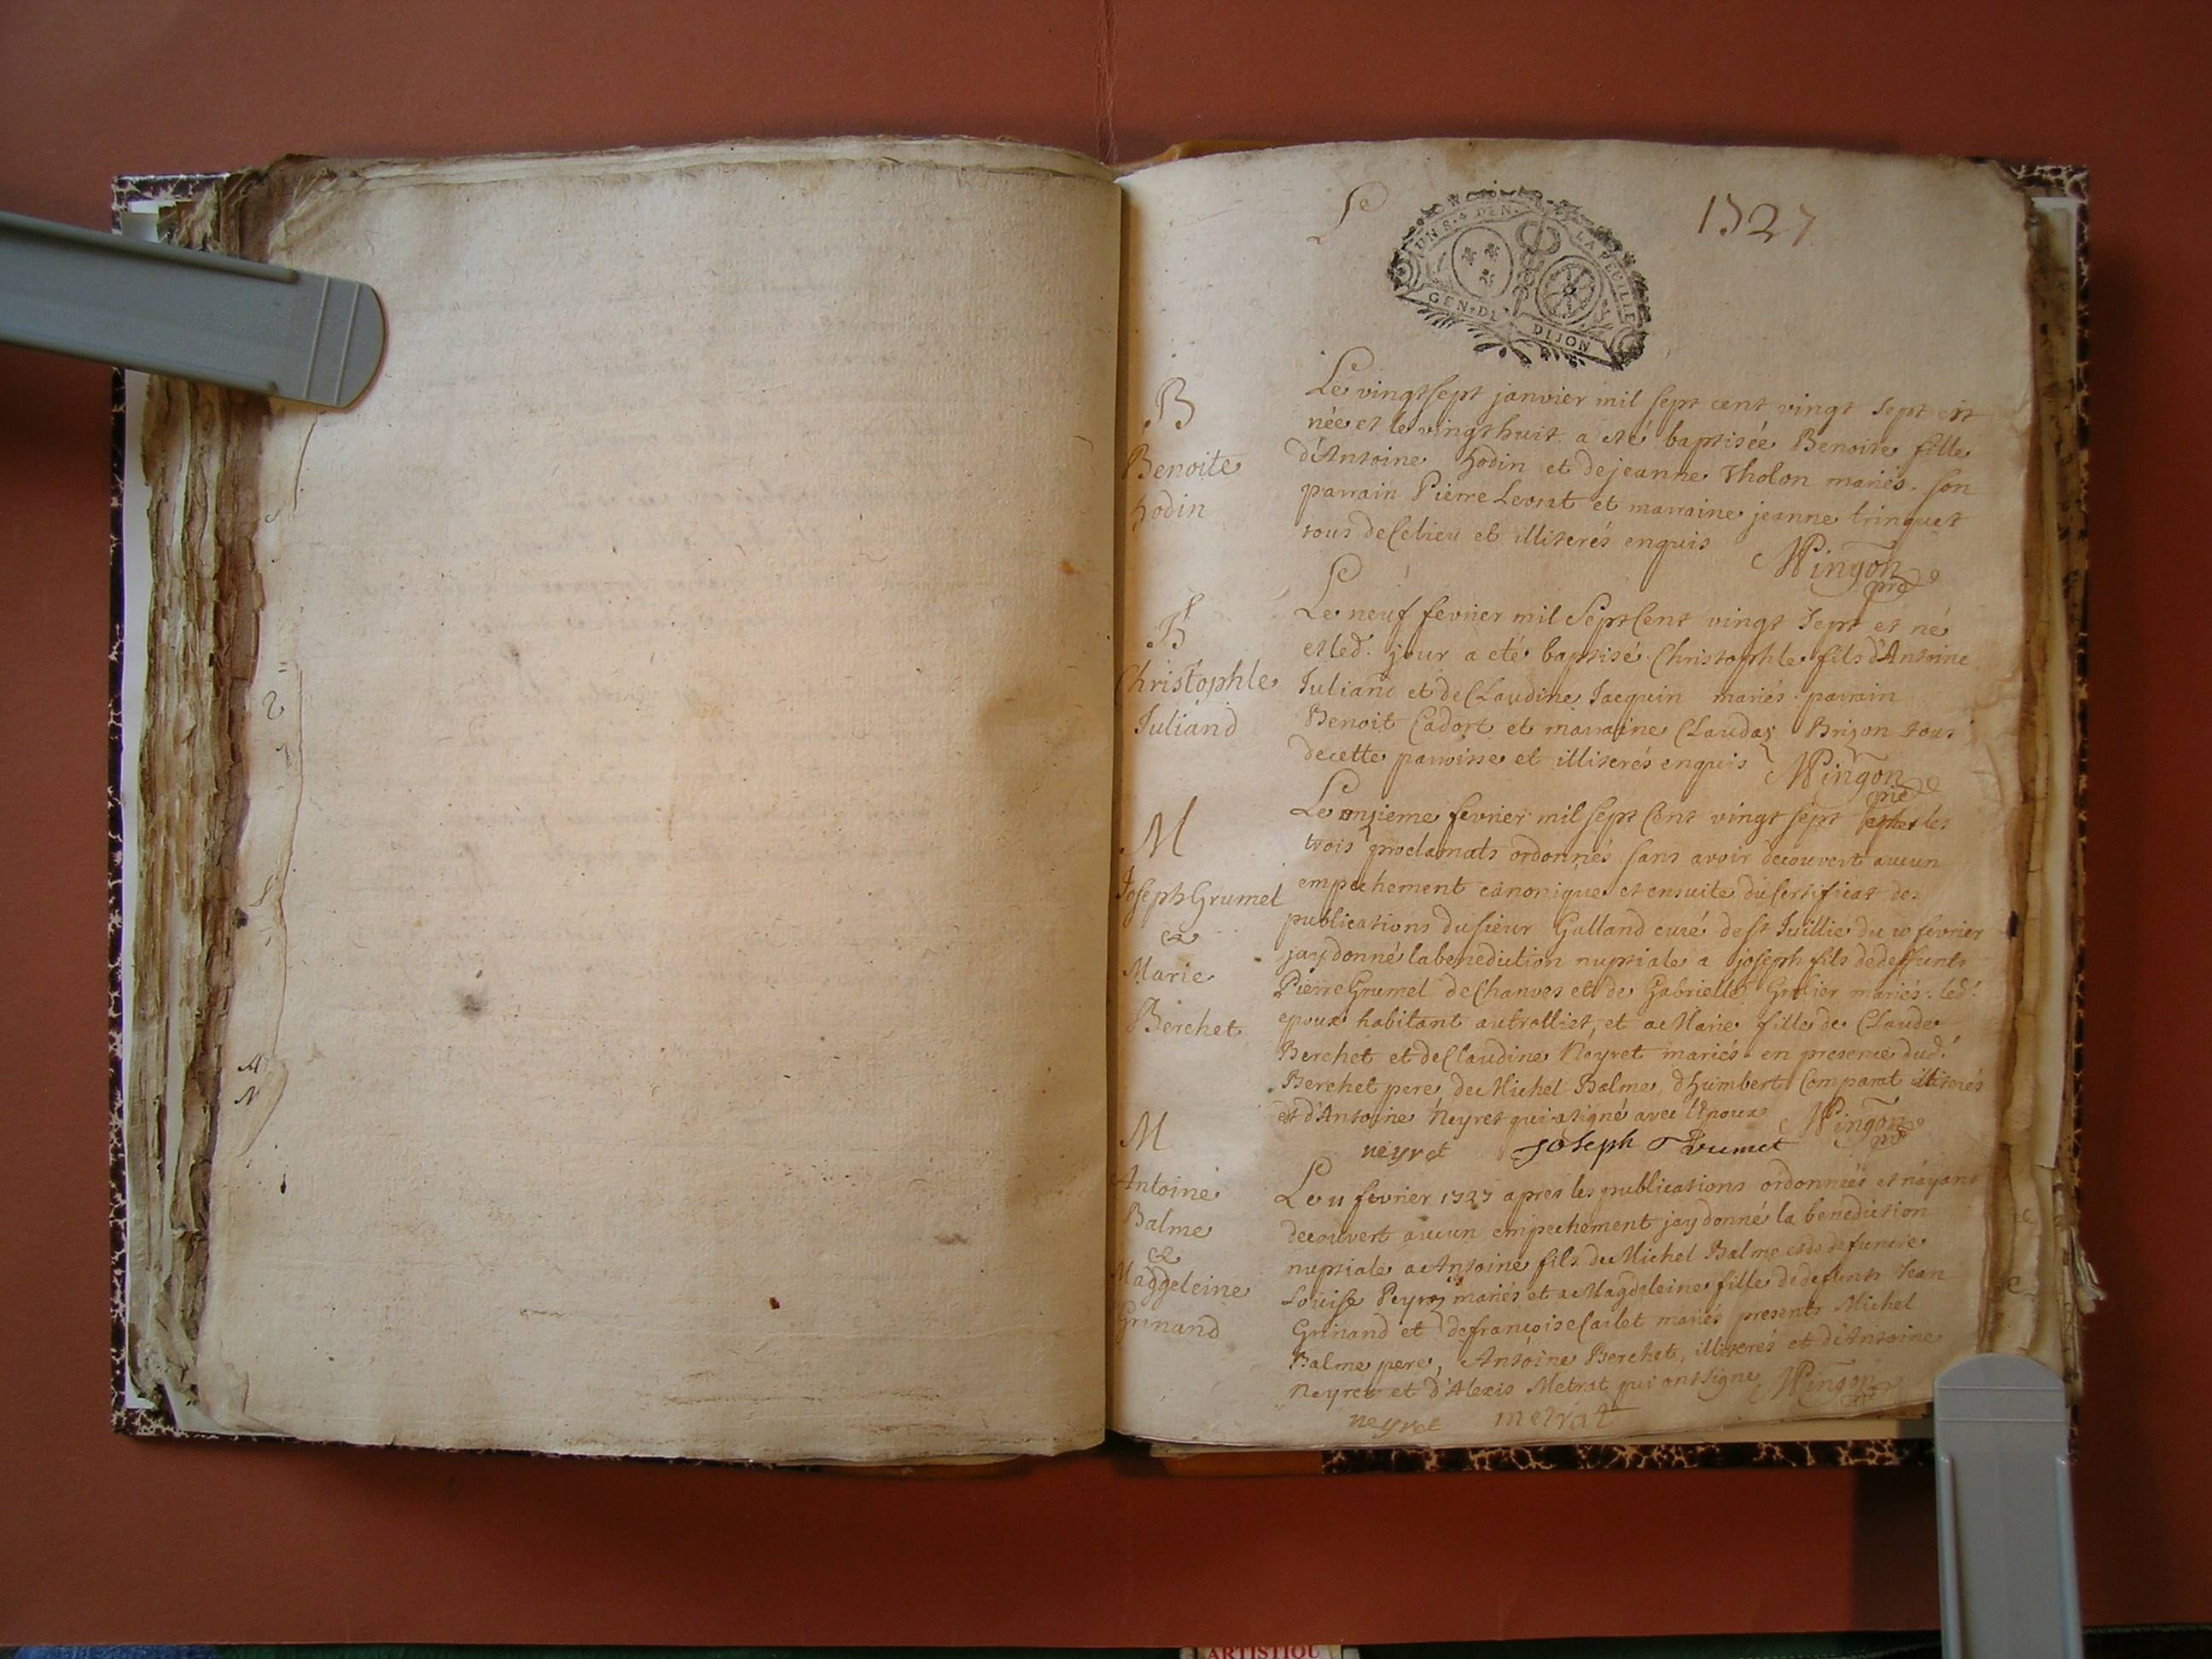 1727
UN S. 4 DEN. LA FEUILLE
GEN. DE DIJON
B
Benoite
hodin
Le vingt sept janvier mil sept cent vingt sept est
née et le vingt huit a eté baptisée Benoite fille
d'Antoine hodin et de jeanne Tholon mariés. son
parrain Pierre Levrat et marraine jeanne trinquet
tous de Ce lieu et illiterés enquis
Mingon
B
Christophle
Juliand
Le neuf fevrier mil Sept Cent vingt Sept est né
et led. jour a eté baptisé Christophle fils d'Antoine
Juliand et de Claudine Jacquin mariés. parrain
Benoit Cadort et marraine Claudas Brison tous
de cette parroisse et illiterés enquis Mingon
M
Joseph Grumet
&
Marie
Berchet
Le onzieme fevrier mil sept Cent vingt sept les
trois proclamats ordonnés sans avoir decouvert aucun
empechement canonique et ensuite du Certificat des
publications du sieur Galland curé de st Juillie du 10 fevrier
jay donné la benediction nuptiale a joseph fils de deffunts
Pierre Grumet de Chanves et de Gabrielle mariés. led.
epoux habitant au trolliet, et a Marie fille de Claude
Berchet et de Claudine Neyret mariés en presence dud.
Berchet pere, de Michel Balme, d'humbert Comparat illiterés
et d'Antoine Neyret qui a signé avec l'Epoux Mingon
neyret joseph Grumet
M
Antoine
Balme
&
Magdeleine
Grinand
Le 11 fevrier 1727 apres les publications ordonnées et n'ayant
decouvert aucun empechement jay donné la benediction
nuptiale a Antoine fils de Michel Balme et de defuncte
Louise mariés et a Magdeleine fille de defunts Jean
Grinand et de françoise Carlet mariés presents Michel
Balme pere, Antoine Berchet, illiterés et d'Antoine
Neyret et d'Alexis Metrat qui ont signe Mingon
neyret metrat
ARTISTIQU